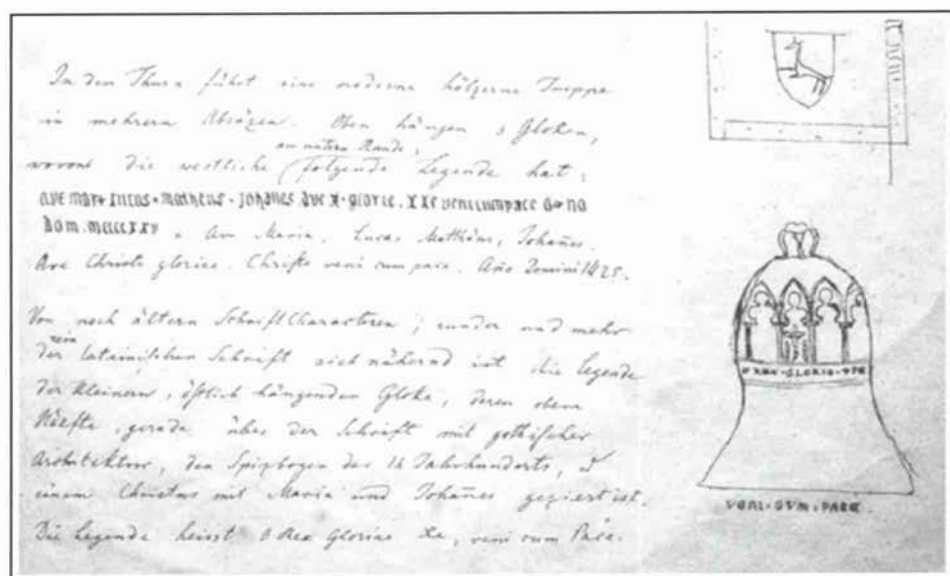 In den Thurn führt eine moderne hölzerne Treppe
in mehrern Absäzen. Oben hängen 3 Gloken,
am untern Rande,
wovon die westliche folgende Legende hat:
ave mar+ lucas • matheus • johanes ave x • glorie . XXE veni cum pace a+no
dom. mccccxxv = Ave Maria, Lucas, Matthäus, Johañes.
Ave Christe gloriae. Christe veni cum pace. Año Domini 1425.
Von noch ältern Schrift Characteren, runder und mehr
rein
der lateinischen Schrift sich nähernd ist die Legende
der kleinern, östlich hängenden Gloke, deren obere
Hälfte, gerade über der Schrift mit gothischer
Architektur, den Spizbogen des 14 Jahrhunderts, u
einem Christus mit Maria und Johañes geziert ist.
Die Legende heisst O Rex Gloriae Xe, veni cum Pace.
O REX • GLORIE • XPE
VENI • CVM • PACE